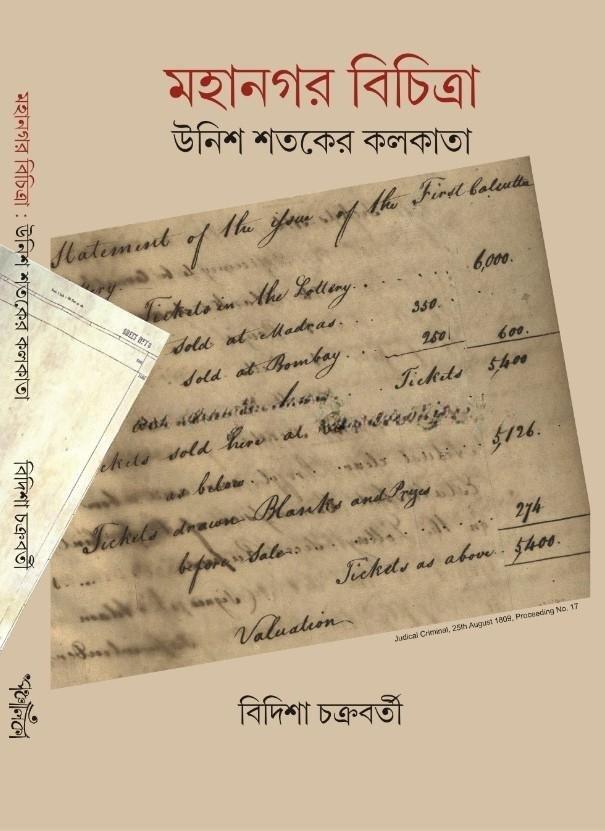 মহানগর বিচিত্রা
উনিশ শতকের কলকাতা
Statement of the issue of the First Calcutta
Tickets in the Lottery 6,000.
sold at Madras 350.
sold at Bombay 250 600.
Tickets 5,400
sold here at
as below 5,126.
Tickets drawn Blanks and Prizes
before Sale 274
Tickets as above 5,400.
Valuation
Judical Criminal, 25th August 1809, Proceeding No. 17
বিদিশা চক্রবর্তী
মহানগর বিচিত্রা : উনিশ শতকের কলকাতা
বিদিশা চক্রবর্তী